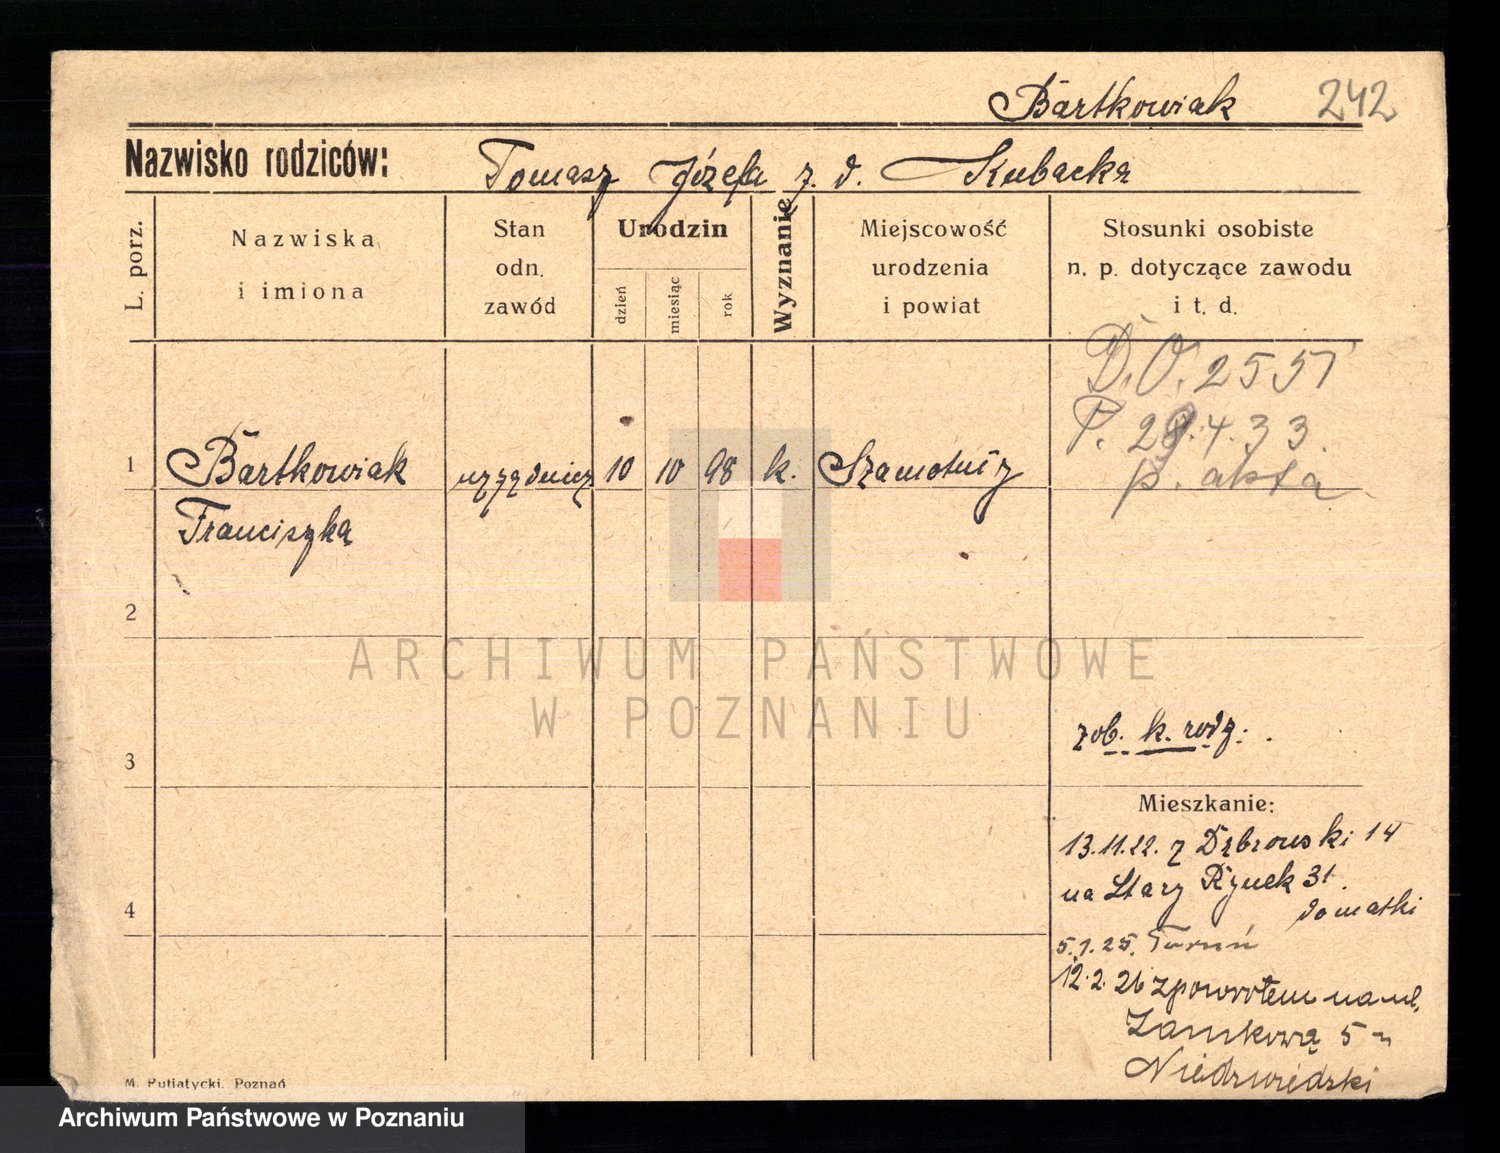 Bartkowiak 242
Nazwisko rodziców: Tomasz Józefa z. d. Kubacka
L. porz.
Nazwiska
i imiona
Stan
odn.
zawód
Urodzin
dzień
miesiąc
rok
Wyznanie
Miejscowość
urodzenia
i powiat
Stosunki osobiste
n. p. dotyczące zawodu
i t. d.
D.O. 2551
P. 28.4.33.
p. akta
1 Bartkowiak 10 10 98 k. Szamotuły
Franciszka
2
3
zob. k. rodz.
Mieszkanie:
13.11.22. z Dąbrowski 14
na Stary Rynek 31.
do matki
4
5.1.25. Toruń
12.2.26 zpowrotem na ul.
Zamkową 5
Niedzwiedzki
M. Putiatycki. Poznań
ARCHIWUM PAŃSTWOWE
W POZNANIU
Archiwum Państwowe w Poznaniu